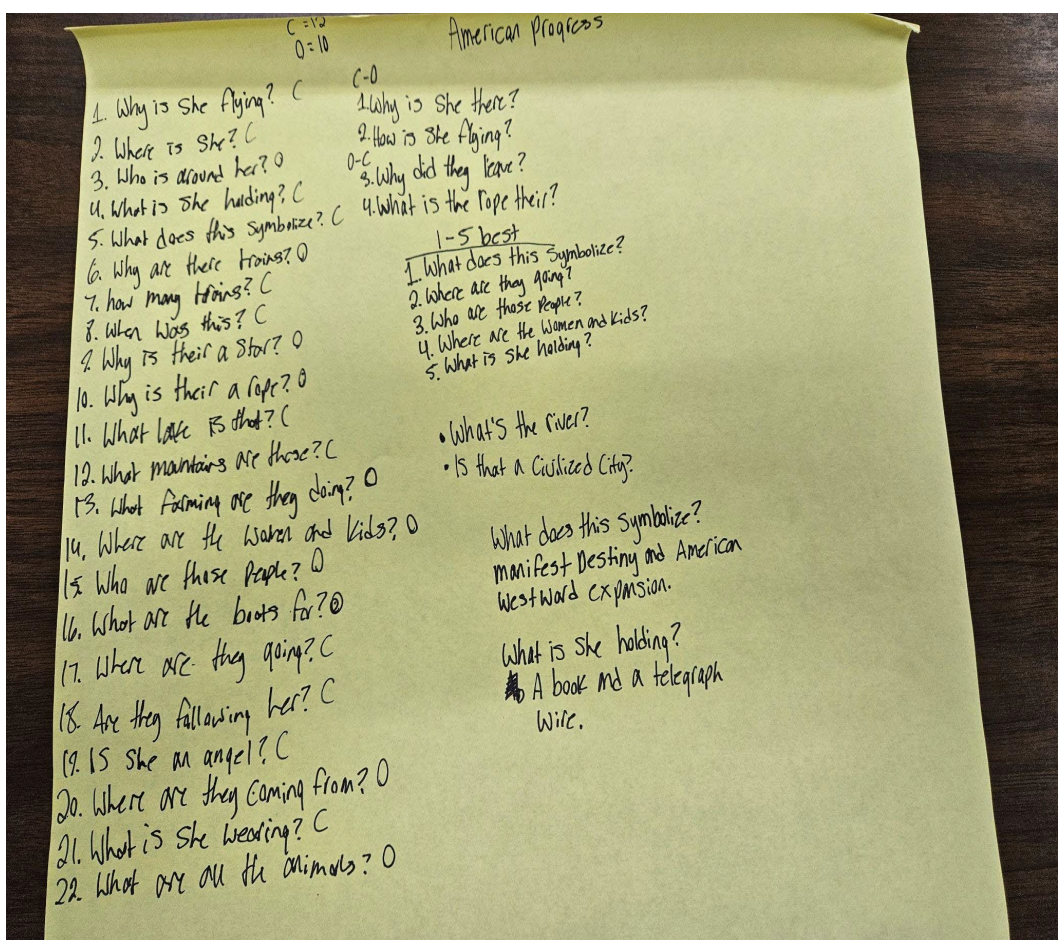 C=12
O=10
American Progress
1. Why is She flying? C
2. Where is She? C
3. Who is around her? O
4. What is She holding? C
5. What does this symbolize? C
6. Why are there trains? O
7. how many trains? C
8. When was this? C
9. Why is their a Star? O
10. Why is their a rope? O
11. What lake is that? C
12. What mountains are those? C
13. What farming are they doing? O
14. Where are the women and kids? O
15. Who are those People? O
16. What are the boots for? O
17. Where are they going? C
18. Are they following her? C
19. Is She an angel? C
20. Where are they coming from? O
21. What is She wearing? C
22. What are all the animals? O
C-O
1. Why is She there?
2. How is She flying?
O-C
3. Why did they leave?
4. What is the rope their?
1-5 best
1. What does this Symbolize?
2. Where are they going?
3. Who are those People?
4. Where are the Women and Kids?
5. What is She holding?
• What's the river?
• Is that a Civilized City?
What does this Symbolize?
manifest Destiny and American
Westward expansion.
What is She holding?
A book and a telegraph
Wire.